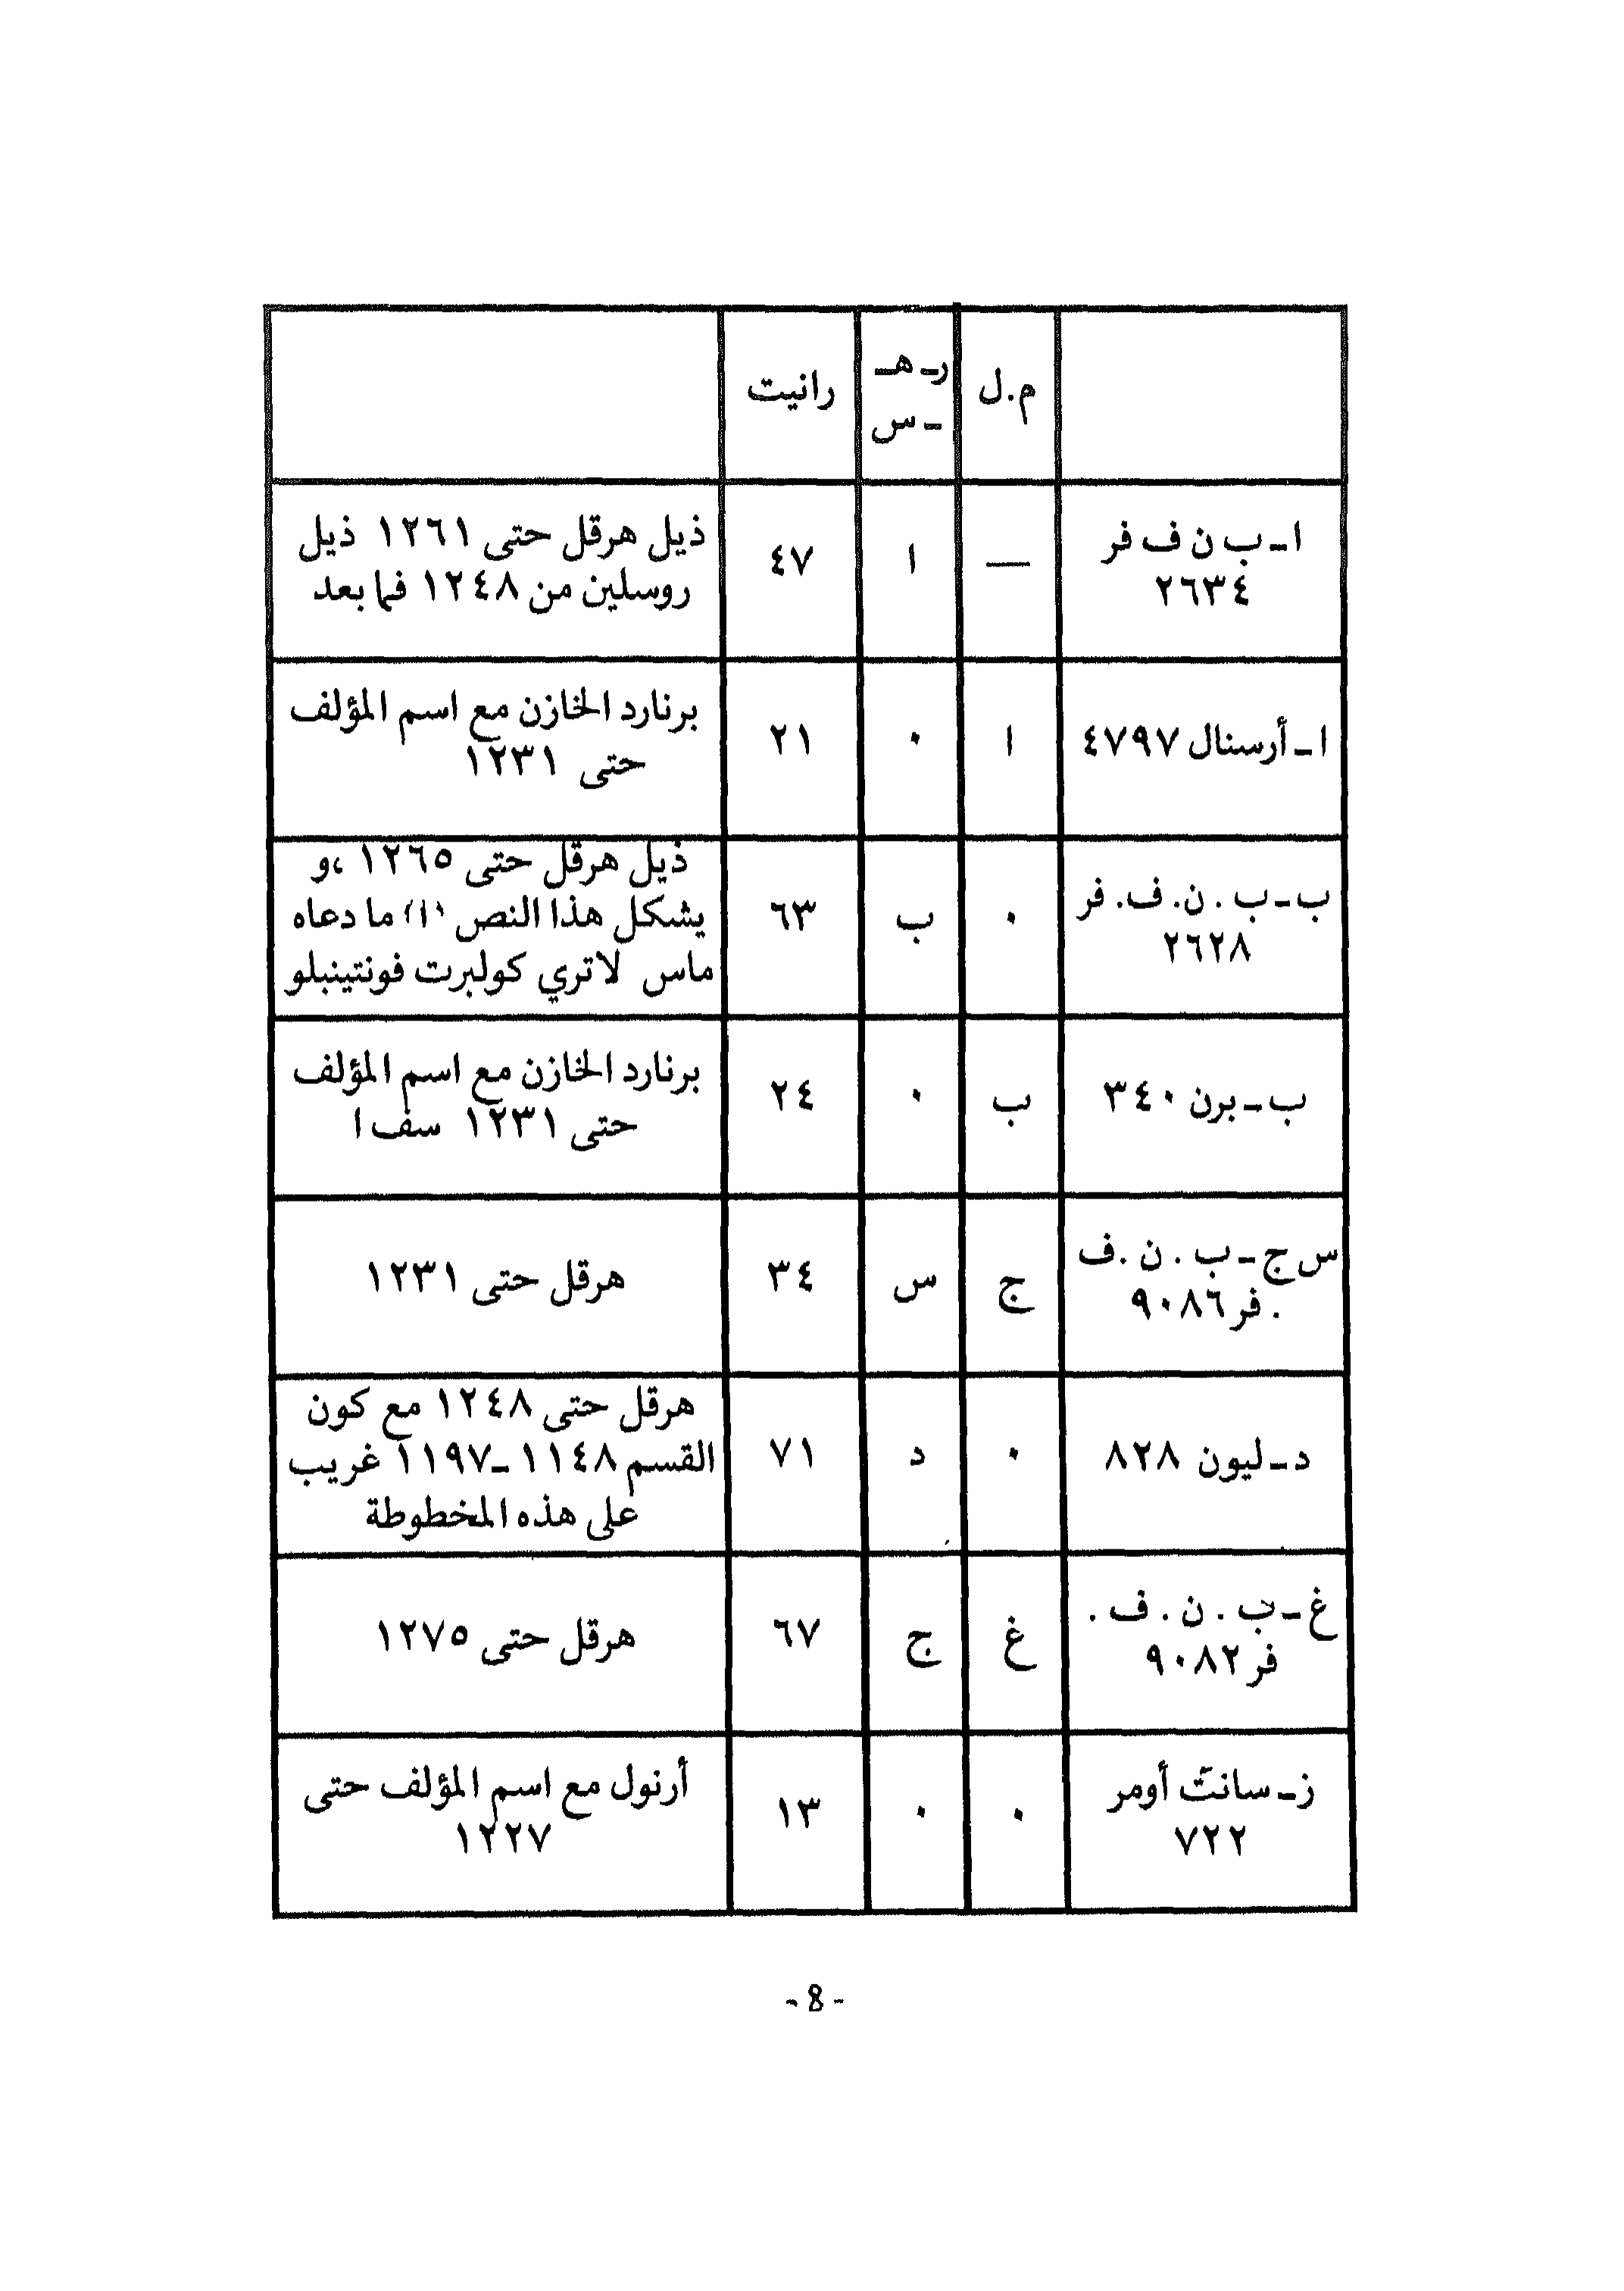 م.ل
رـ هـ
ـ س
رانيت
ا ـ ب ن ف فر
٢٦٣٤
—
ا
٤٧
ذيل هرقل حتى ١٢٦١ ذيل
روسلين من ١٢٤٨ فما بعد
ا ـ أرسنال ٤٧٩٧
ا
٠
٢١
برنارد الخازن مع اسم المؤلف
حتى ١٢٣١
ب ـ ب . ن. ف. فر
٢٦٢٨
٠
ب
٦٣
ذيل هرقل حتى ١٢٦٥ ،و
يشكل هذا النص (ا) ما دعاه
ماس لاتري كولبرت فونتينبلو
ب ـ برن ٣٤٠
ب
٠
٢٤
برنارد الخازن مع اسم المؤلف
حتى ١٢٣١ سف ا
س ج ـ ب . ن .ف
. فر ٩٠٨٦
ج
س
٣٤
هرقل حتى ١٢٣١
د ـ ليون ٨٢٨
٠
د
٧١
هرقل حتى ١٢٤٨ مع كون
القسم ١١٤٨ ـ١١٩٧ غريب
على هذه المخطوطة
غ ـ ب . ن . ف .
فر ٩٠٨٢
غ
ج
٦٧
هرقل حتى ١٢٧٥
ز ـ سانت أومر
٧٢٢
٠
٠
١٣
أرنول مع اسم المؤلف حتى
١٢٢٧
- 8 -